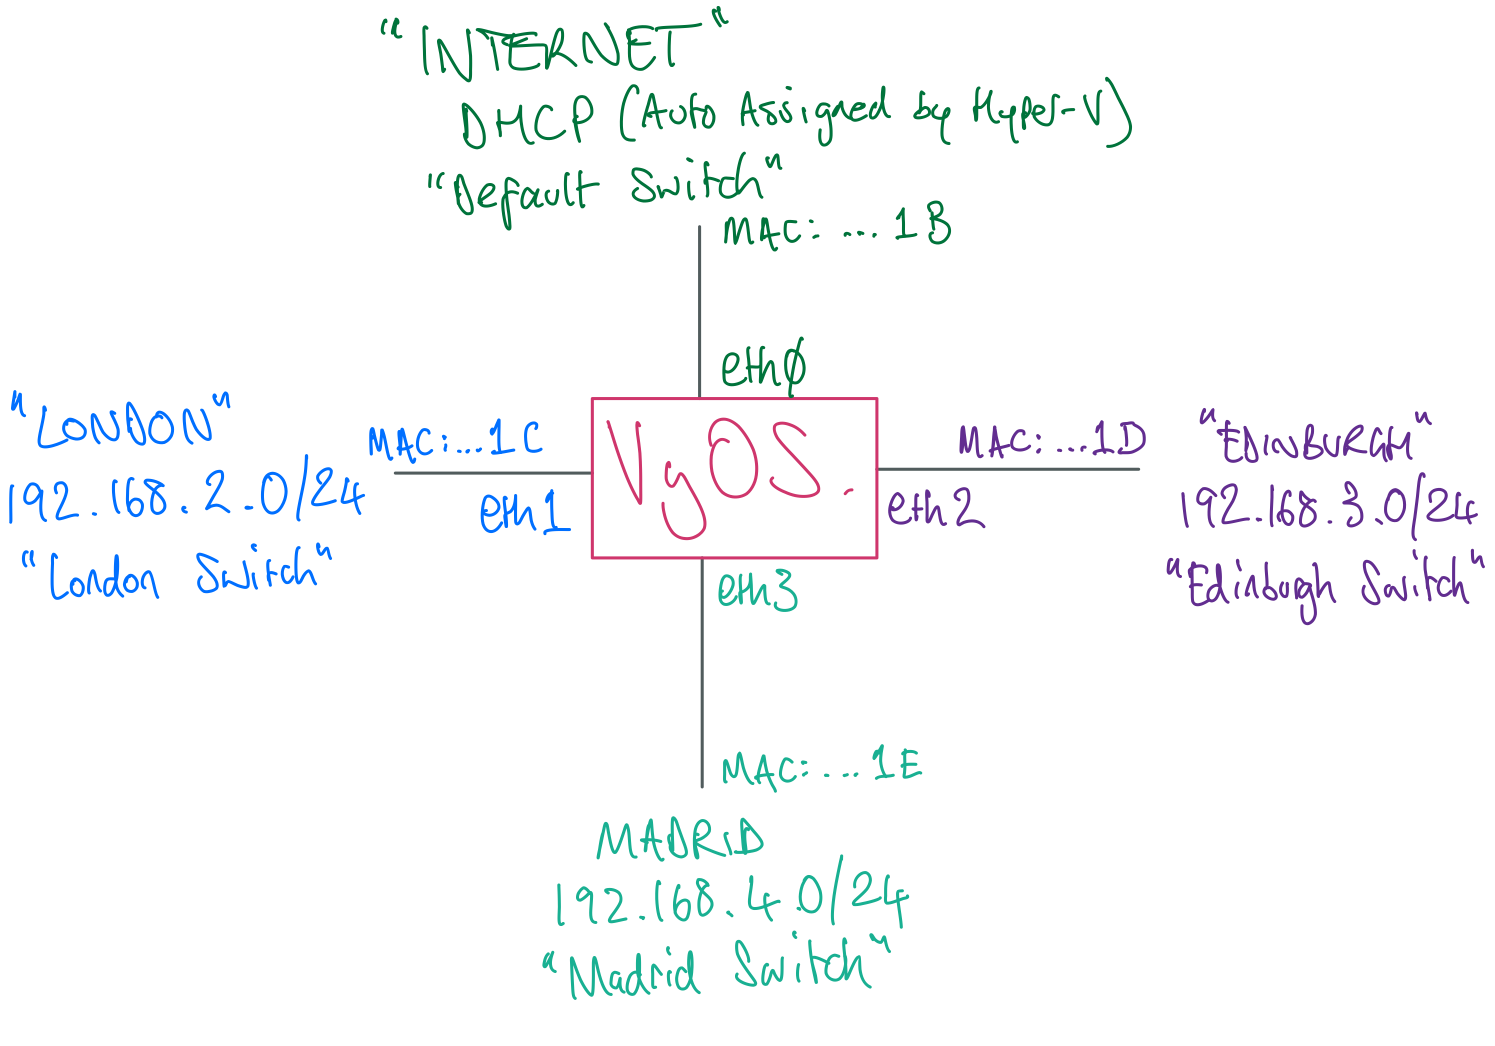 "INTERNET"
DHCP (Auto Assigned by Hyper-V)
"Default Switch"
MAC: ... 1B
eth0
"LONDON"
192.168.2.0/24
"London Switch"
MAC: ...1C
eth1
VyOS.
MAC: ...1D
eth2
"EDINBURGH"
192.168.3.0/24
"Edinburgh Switch"
eth3
MAC: ... 1E
MADRID
192.168.4.0/24
"Madrid Switch"